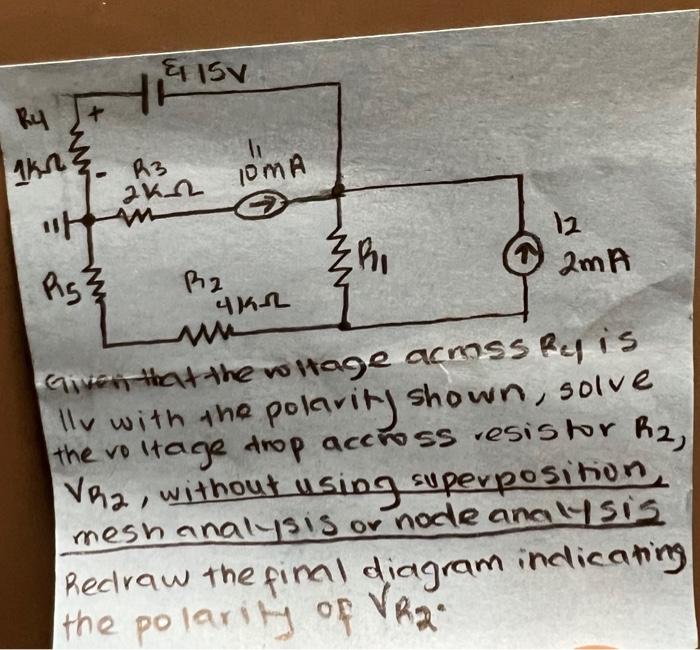 E1 15V
R4
+
1kΩ
-
R3
2kΩ
I1
10mA
I2
2mA
R1
R5
R2
4kΩ
Given that the voltage across R4 is
11v with the polarity shown, solve
the voltage drop accross resistor R2,
VR2, without using superposition,
mesh analysis or node analysis
Redraw the final diagram indicating
the polarity of VR2.